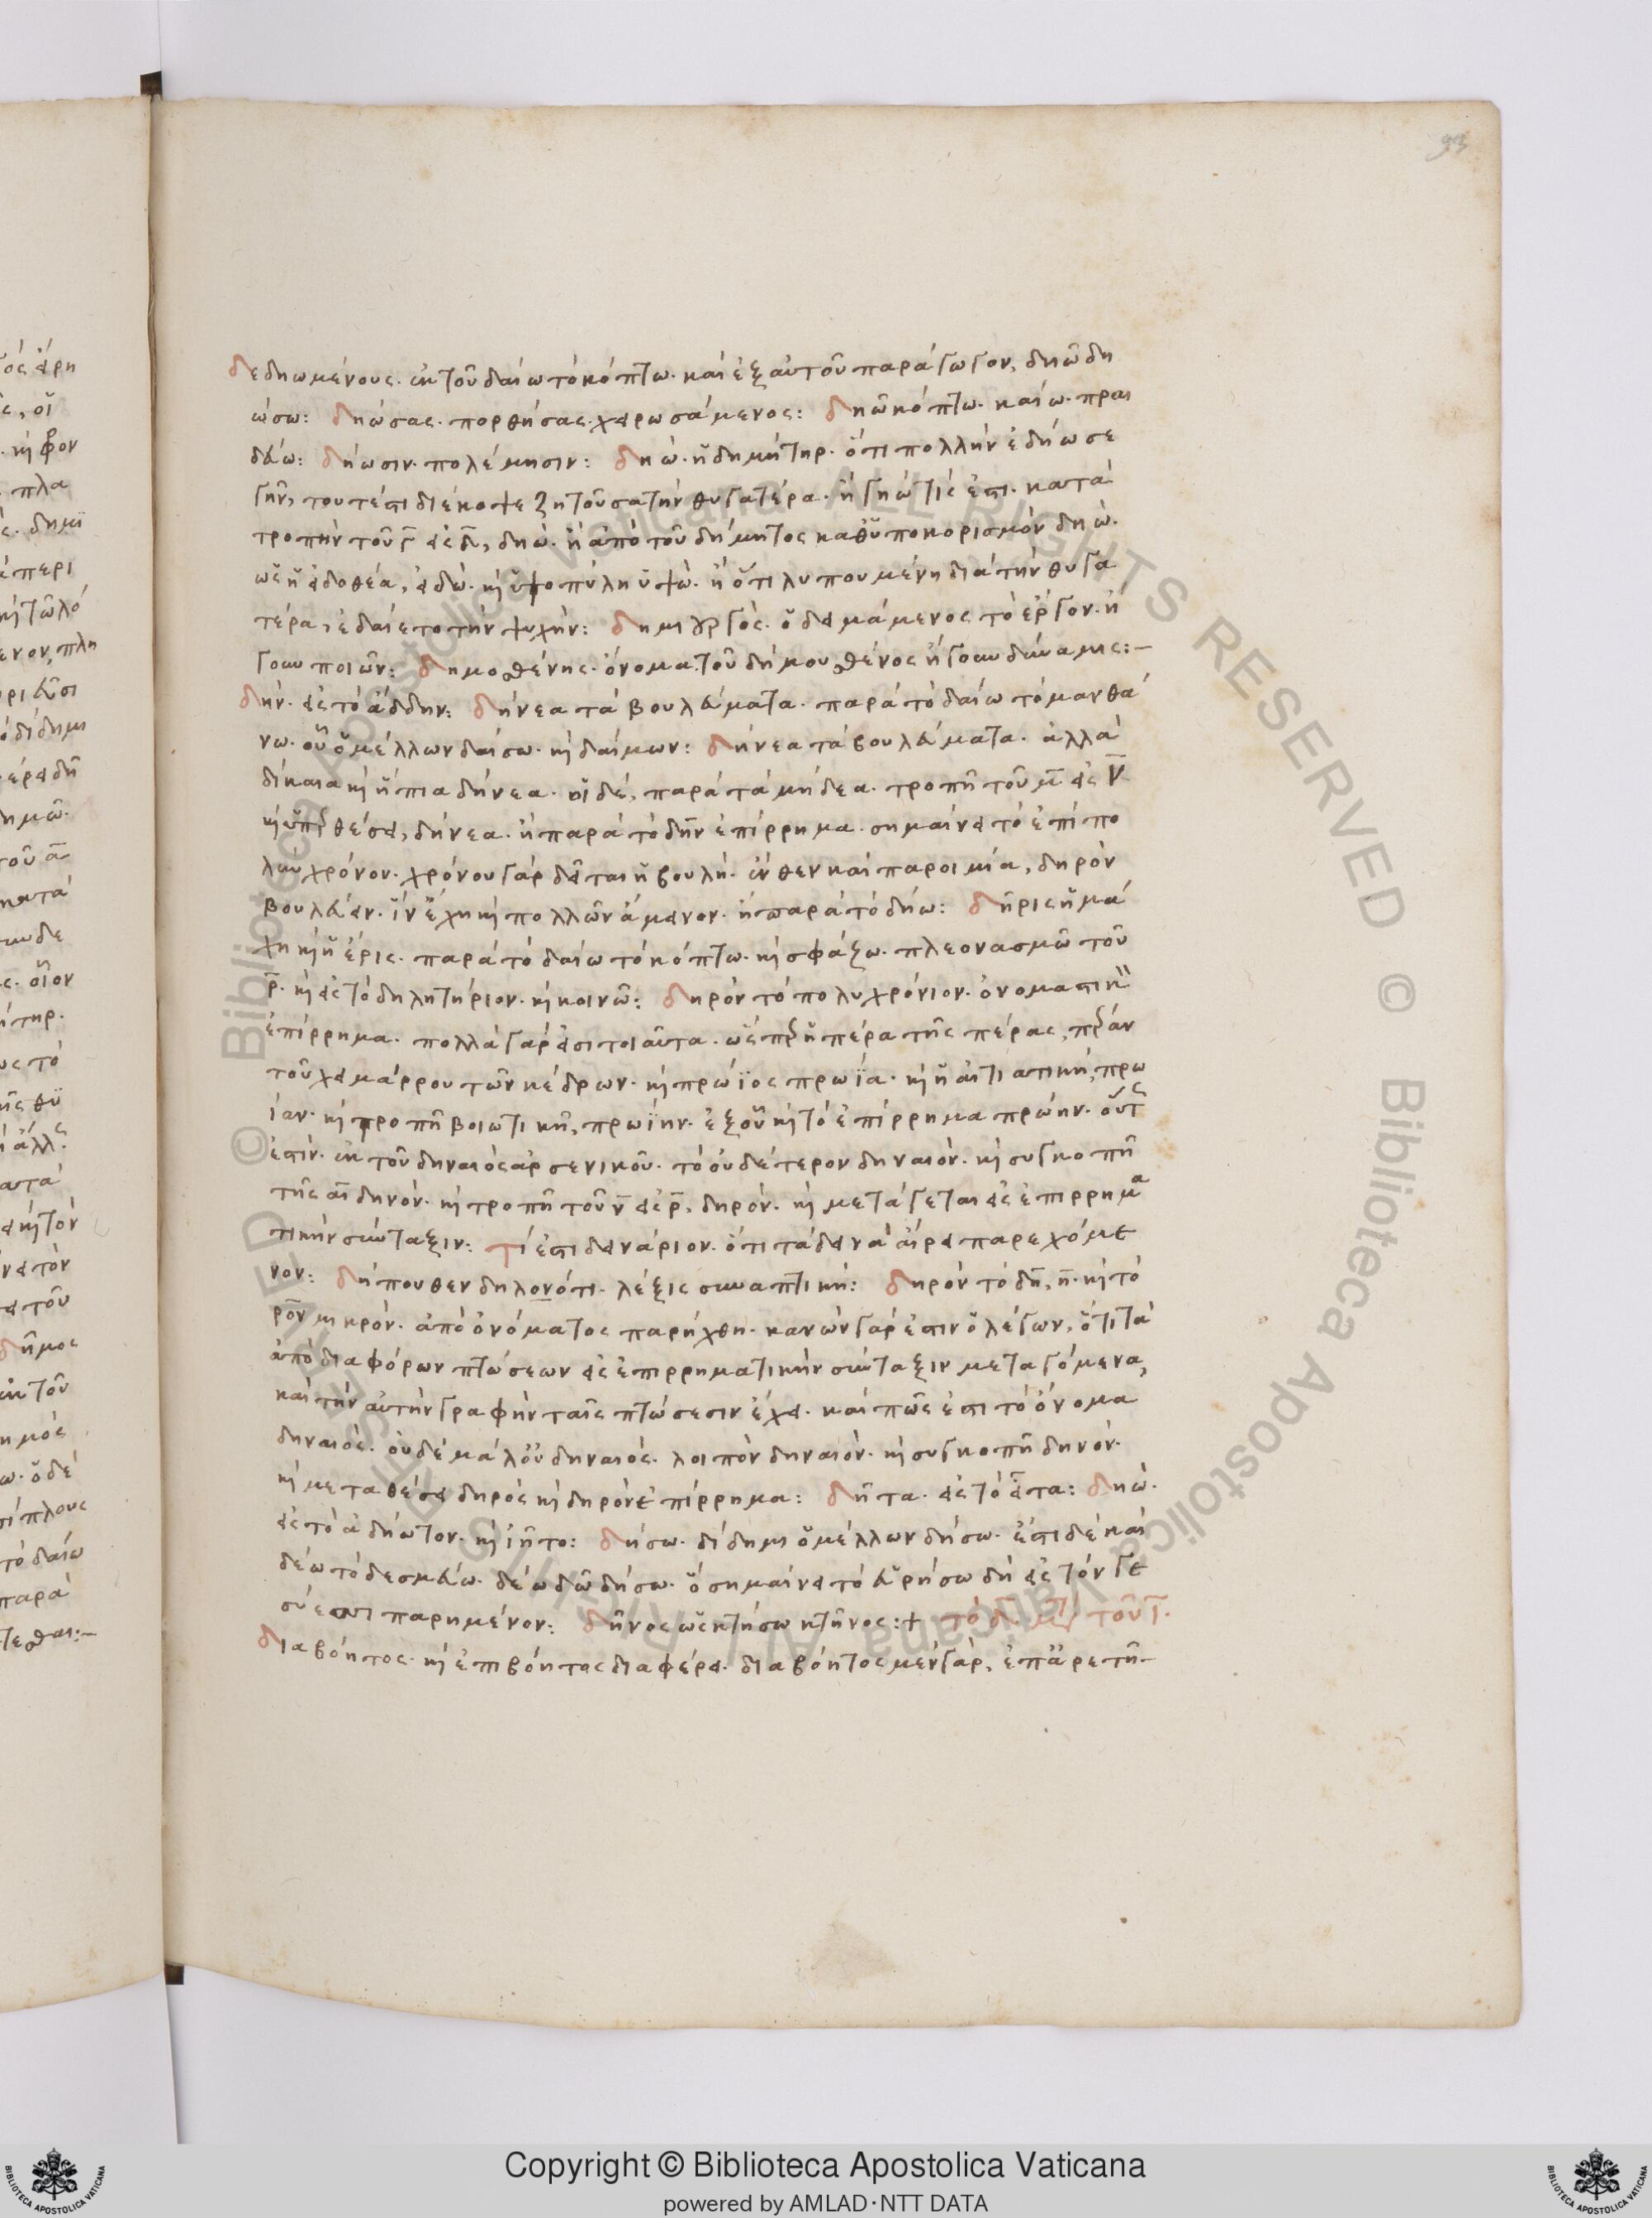 93
δεδηωμένους. ἐκ τοῦ δαίω τὸ κόπτω. καὶ ἐξ αὐτοῦ παράγωγον, δηῶ δη
ώσω: δηώσας. πορθήσας. χειρωσάμενος: δηῶ κόπτω. καίω. πραι
δεύω: δήωσιν. πολέμησιν: δηώ. ἡ δημήτηρ. ὅτι πολλὴν ἐδήωσε
γῆν, τουτέστι διέκοψε ζητοῦσα τὴν θυγατέρα. ἢ γηώ τίς ἐστι. κατὰ
τροπὴν τοῦ γ̅ εἰς δ̅, δηώ. ἢ ἀπὸ τοῦ δήμητος καθ' ὑποκορισμὸν δηώ.
ὡς ἡ εἰδοθέα, εἰδώ. κ ὑψοπύλη ὑψώ. ἢ ὅτι λυπουμένη διὰ τὴν θυγα
τέρα, ἐδαίετο τὴν ψυχήν: δημιουργός. ὁ δειμάμενος τὸ ἔργον. ἤ
γουν ποιῶν: δημοσθένης. ὄνομα. τοῦ δήμου σθένος ἤγουν δύναμις:–
δήν. εἰς τὸ ἄδδην: δήνεα τὰ βουλεύματα. παρὰ τὸ δαίω τὸ μανθά
νω. οὗ ὁ μέλλων δαίσω. κ δαίμων: δήνεα τὰ βουλεύματα. ἀλλὰ
δίκαια κ ἤπια δήνεα. οἱ δέ, παρὰ τὰ μήδεα. τροπῇ τοῦ μ̅ εἰς ν̅
κ ὑπερθέσει, δήνεα. ἢ παρὰ τὸ δὴν ἐπίρρημα. σημαίνει τὸ ἐπὶ πο
λὺν χρόνον. χρόνου γὰρ δεῖται ἡ βουλή. ἔνθεν καὶ παροιμία, δηρὸν
βουλεύειν. ἵν' ἔχῃ κ πολλῶν ἄμεινον. ἢ παρὰ τὸ δήω: δῆρις ἡ μά
χη κ ἡ ἔρις. παρὰ τὸ δαίω τὸ κόπτω. κ σφάζω. πλεονασμῶ τοῦ
ρ̅. κ εἰς τὸ δηλητήριον. κ κοινῶ: δηρὸν τὸ πολυχρόνιον. ὀνοματικὸν
ἐπίρρημα. πολλὰ γάρ εἰσι τοιαῦτα. ὥσπερ ἡ πέρα τῆς πέρας, πέραν
τοῦ χειμάρρου τῶν κέδρων. κ πρώϊος πρωΐα. κ ἡ αἰτιατική, πρω
ίαν. κ τροπῇ βοιωτικῇ, πρωΐην. ἐξ οὗ κ τὸ ἐπίρρημα πρώην. οὕτως
ἐστίν. ἐκ τοῦ δηναιὸς ἀρσενικοῦ. τὸ οὐδέτερον δηναιόν. κ συγκοπῇ
τῆς αι̅ δηνόν. κ τροπῇ τοῦ ν̅ εἰς ρ̅. δηρόν. κ μετάγεται εἰς ἐπιρρημα
τικὴν σύνταξιν: τί ἐστι δεινάριον. ὅτι τὰ δεινὰ αἴρει παρεχόμε
νον: δήπουθεν δηλονότι. λέξις συναπτική: δηρὸν τὸ δη̅, η̅. κ τὸ
ρον̅ μικρόν. ἀπὸ ὀνόματος παρήχθη. κανὼν γάρ ἐστιν ὁ λέγων, ὅτι τὰ
ἀπὸ διαφόρων πτώσεων εἰς ἐπιρρηματικὴν σύνταξιν μεταγόμενα,
καὶ τὴν αὐτὴν γραφὴν ταῖς πτώσεσιν ἔχει. καὶ πῶς ἐστι τὸ ὄνομα
δηναιός. οὐδὲ μάλ' οὖν δηναιός. λοιπὸν δηναιόν. κ συγκοπῇ δηνόν.
κ μεταθέσει δηρός κ δηρὸν ἐπίρρημα: δῆτα. εἰς τὸ εἶτα: δηώ.
εἰς τὸ ἀδήωτον. κ ἰῆτο: δήσω. δίδημι ὁ μέλλων δήσω. ἔστι δὲ καὶ
δέω τὸ δεσμεύω. δέω δῶ δήσω. ὃ σημαίνει τὸ εὑρήσω δὴ εἰς τόν γε
σύεσσι παρημένον: δῆνος ὡς κτήσω κτῆνος:+ τὸ δ̅. μετὰ τοῦ ι̅.
διαβόητος. κ ἐπιβόητος διαφέρει. διαβόητος μὲν γάρ, ἐπ' ἀρετῇ–
Copyright © Biblioteca Apostolica Vaticana
powered by AMLAD·NTT DATA